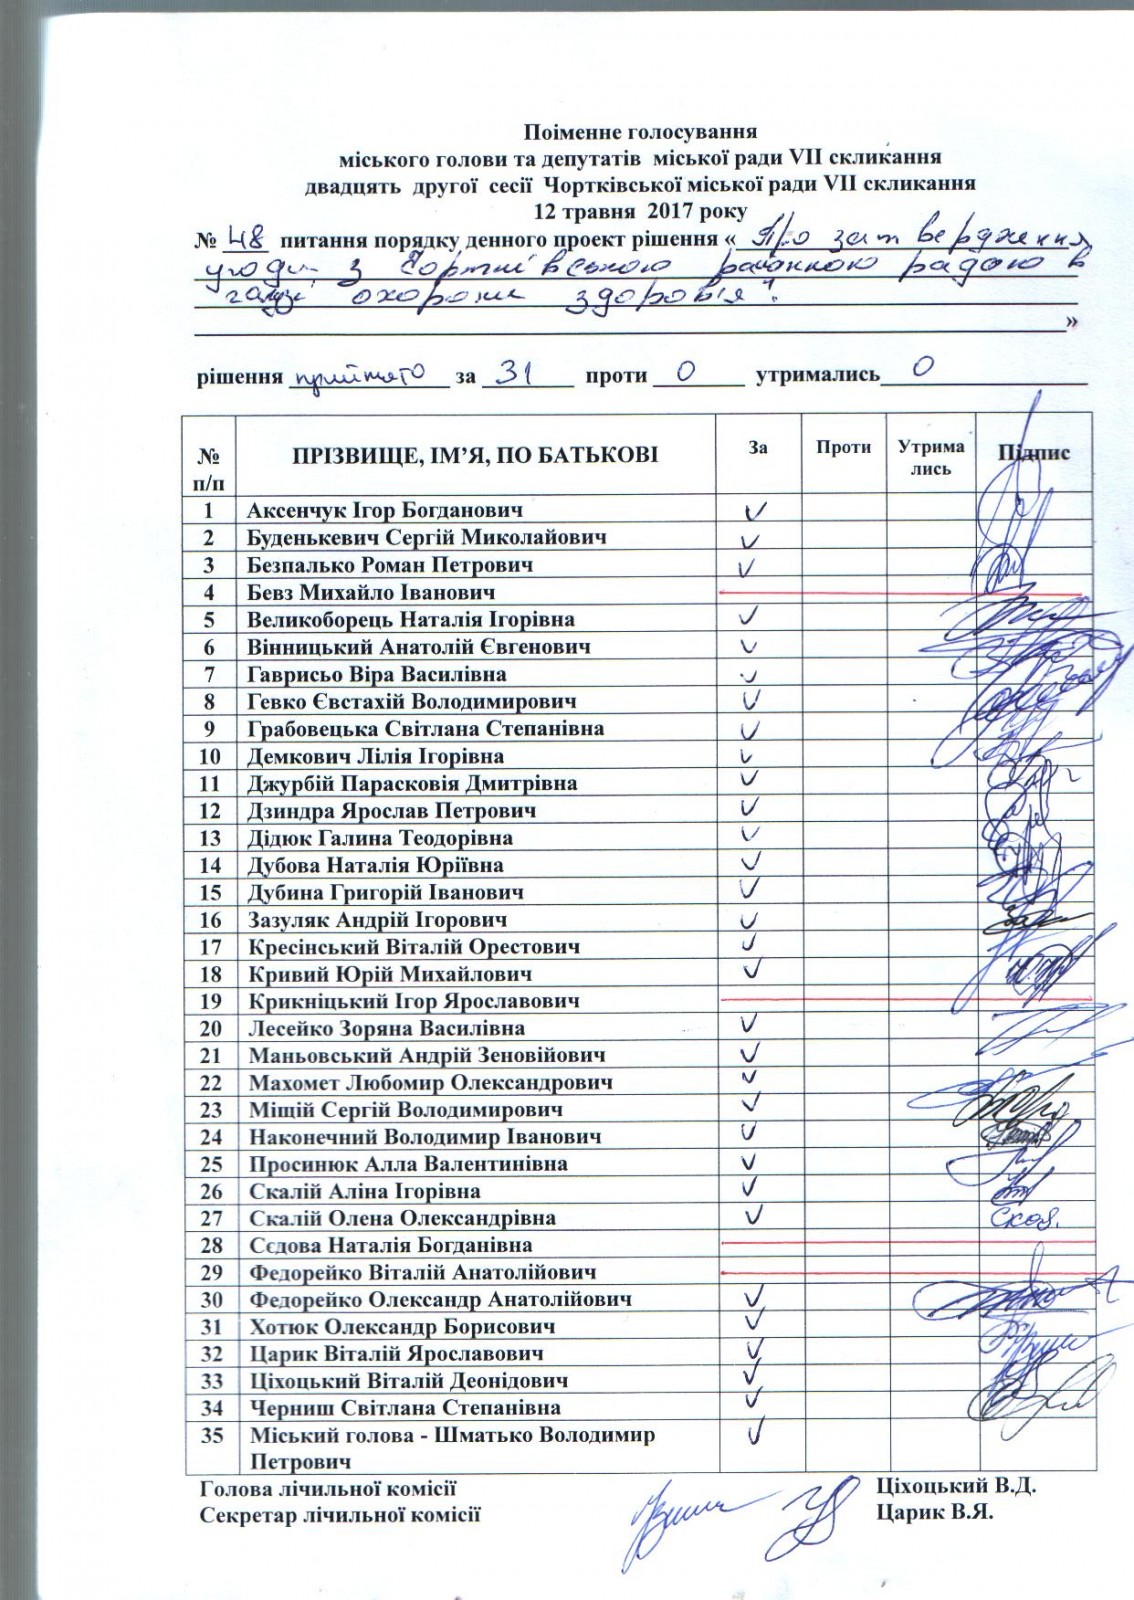 Поіменне голосування
міського голови та депутатів міської ради VII скликання
двадцять другої сесії Чортківської міської ради VII скликання
12 травня 2017 року
№ 48 питання порядку денного проект рішення « Про затвердження
угоди з Чортківською районною радою в
галузі охорони здоров'я".
»
рішення прийнято за 31 проти 0 утримались 0
№ п/п ПРІЗВИЩЕ, ІМ’Я, ПО БАТЬКОВІ За Проти Утрима лись Підпис
1 Аксенчук Ігор Богданович ✓
2 Буденькевич Сергій Миколайович ✓
3 Безпалько Роман Петрович ✓
4 Бевз Михайло Іванович
5 Великоборець Наталія Ігорівна ✓
6 Вінницький Анатолій Євгенович ✓
7 Гаврисьо Віра Василівна ✓
8 Гевко Євстахій Володимирович ✓
9 Грабовецька Світлана Степанівна ✓
10 Демкович Лілія Ігорівна ✓
11 Джурбій Парасковія Дмитрівна ✓
12 Дзиндра Ярослав Петрович ✓
13 Дідюк Галина Теодорівна ✓
14 Дубова Наталія Юріївна ✓
15 Дубина Григорій Іванович ✓
16 Зазуляк Андрій Ігорович ✓
17 Кресінський Віталій Орестович ✓
18 Кривий Юрій Михайлович ✓
19 Крикніцький Ігор Ярославович
20 Лесейко Зоряна Василівна ✓
21 Маньовський Андрій Зеновійович ✓
22 Махомет Любомир Олександрович ✓
23 Міщій Сергій Володимирович ✓
24 Наконечний Володимир Іванович ✓
25 Просинюк Алла Валентинівна ✓
26 Скалій Аліна Ігорівна ✓
27 Скалій Олена Олександрівна ✓
28 Сєдова Наталія Богданівна
29 Федорейко Віталій Анатолійович
30 Федорейко Олександр Анатолійович ✓
31 Хотюк Олександр Борисович ✓
32 Царик Віталій Ярославович ✓
33 Ціхоцький Віталій Деонідович ✓
34 Черниш Світлана Степанівна ✓
35 Міський голова - Шматько Володимир ✓
Петрович
Голова лічильної комісії Ціхоцький В.Д.
Секретар лічильної комісії Царик В.Я.